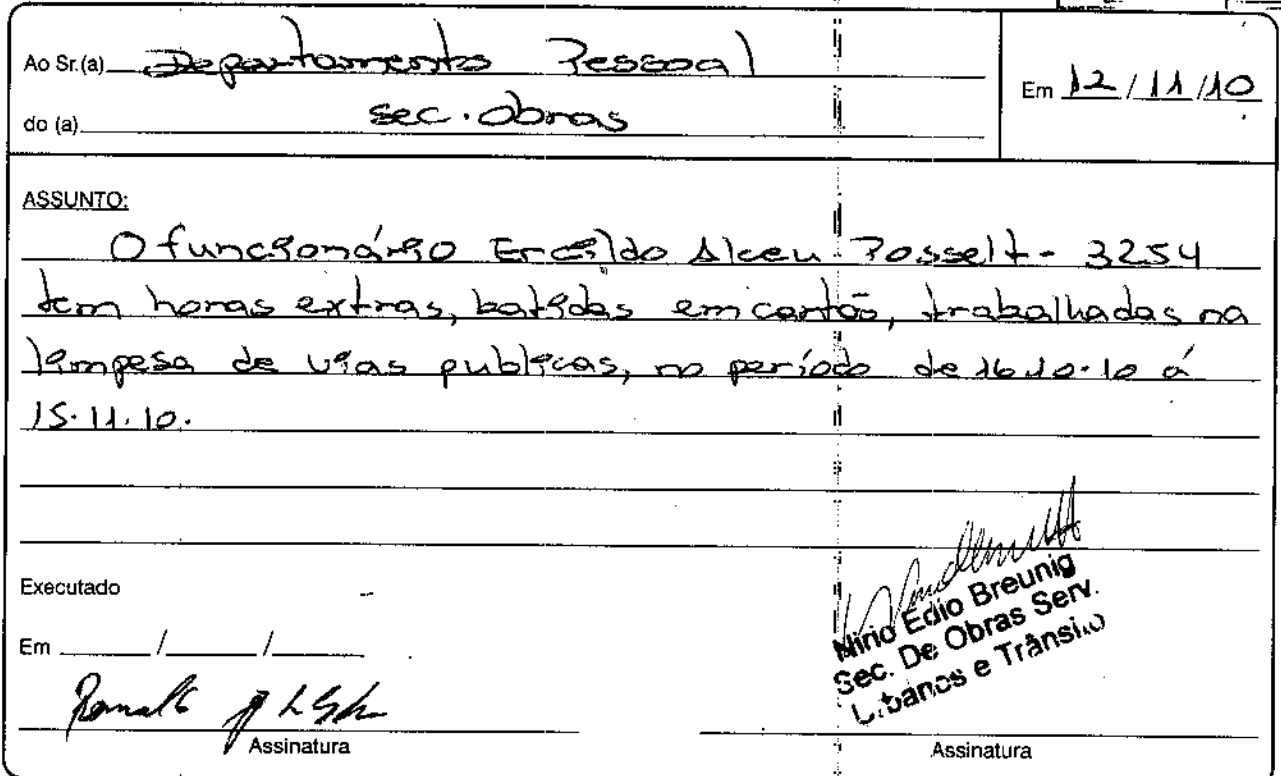 Ao Sr.(a) Departamento Pessoal
Em 12/11/10
do (a) sec. obras
ASSUNTO:
O funcionário Ercildo Alceu Posselt - 3254
tem horas extras, batidas em cartão, trabalhadas na
limpesa de vias publicas, no período de 16.10.10 á
15.11.10.
Executado
Em ____/____/____
Nirio Edio Breunig
Sec. De Obras Serv.
Urbanos e Trânsito
Assinatura
Assinatura